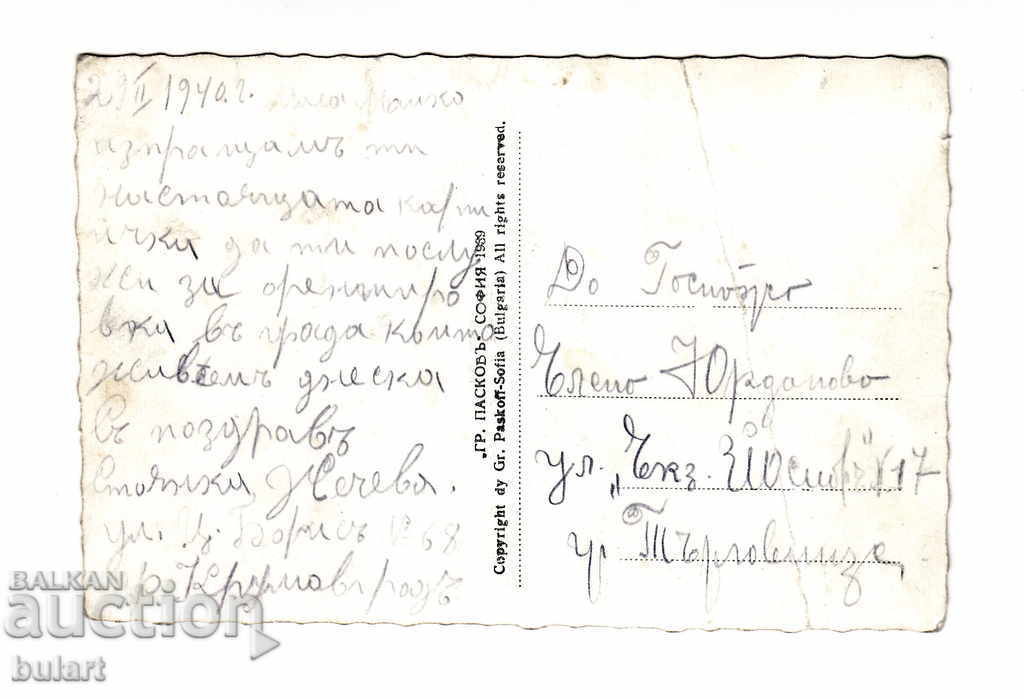 1940 г. Мила Майко
изпращамъ ти
настоящата карти
чка да ти послу
жи за ориентиро
вка въ града който
живѣемъ днеска
Съ поздравъ
Стоянка Нечева.
ул. Ц. Борисъ № 68
гр. Крумовградъ
„ГР. ПАСКОВЪ“ СОФИЯ 1939
Copyright dy Gr. Paskoff-Sofia (Bulgaria) All rights reserved.
До Госпожа
Елена Юрданова
ул. „Екз. Йосифъ“ № 17
гр. Търговище
BALKAN
auction
bulart